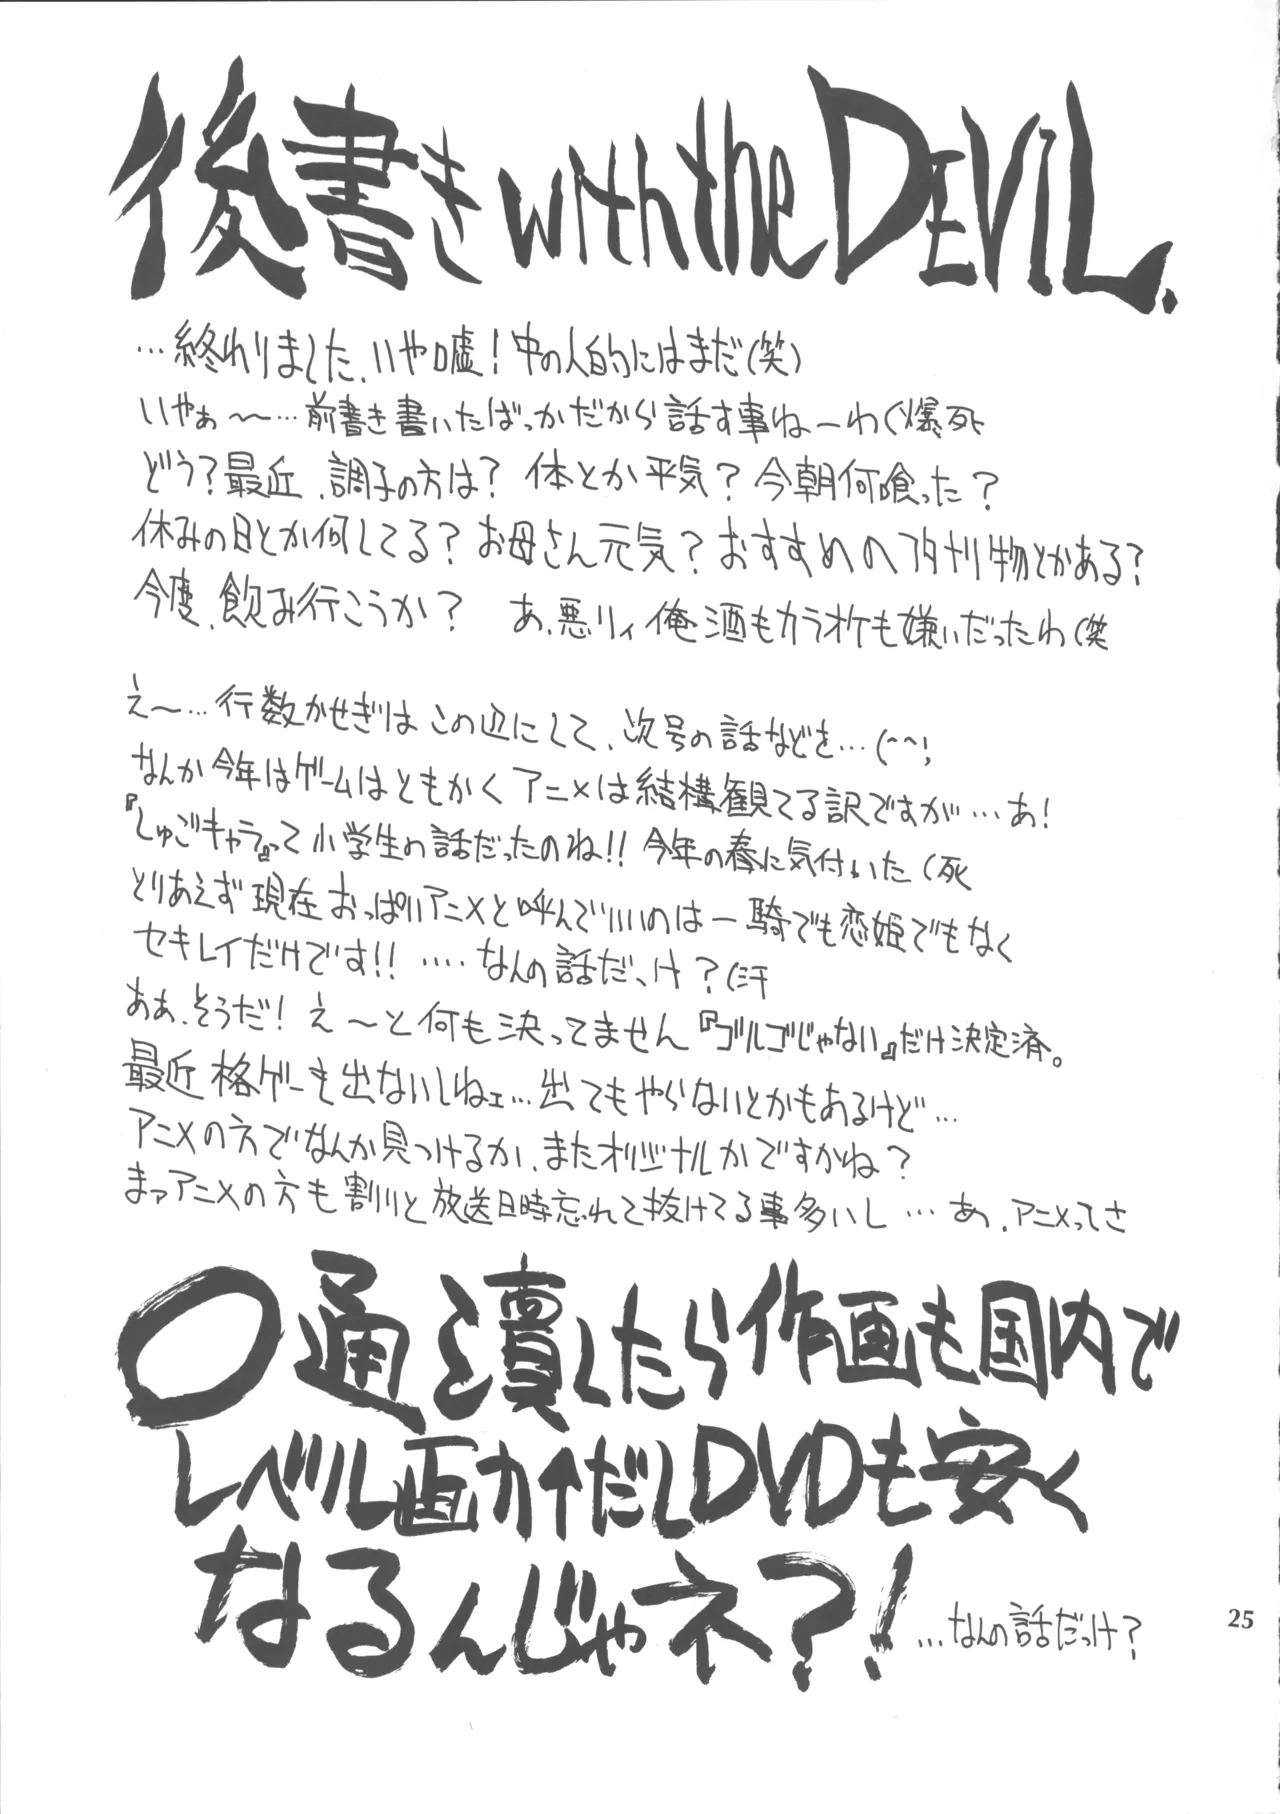 後書き with the DEVIL.
…終わりました、いや嘘!中の人的にはまだ(笑)
いやぁ〜…前書き書いたばっかだから話す事ねーわ(爆死
どう?最近、調子の方は? 体とか平気?今朝何喰った?
休みの日とか何してる?お母さん元気?おすすめのアタリ物とかある?
今度、飲み行こうか? あ、悪リィ俺酒もカラオケも嫌いだったわ(笑
え〜…行数かせぎはこの辺にして、次号の話などを…(^^;
なんか今年はゲームはともかくアニメは結構観てる訳ですが…あ!
『しゅごキャラ』って小学生の話だったのね!!今年の春に気付いた(死
とりあえず現在おっぱいアニメと呼んでいいのは一騎でも恋姫でもなく
セキレイだけです!! ‥‥なんの話だっけ?(汗
ああ、そうだ! え〜と何も決ってません『ゴルゴじゃない』だけ決定済。
最近格ゲーも出ないしねェ…出てもやらないとかもあるけど…
アニメの方でなんか見つけるか、またオリジナルかですかね?
まァアニメの方も割りと放送日時忘れて抜けてる事多いし…あ、アニメってさ
〇通を潰したら作画も国内で
レベル画力↑だしDVDも安く
なるんじゃネ?!
…なんの話だっけ?
25